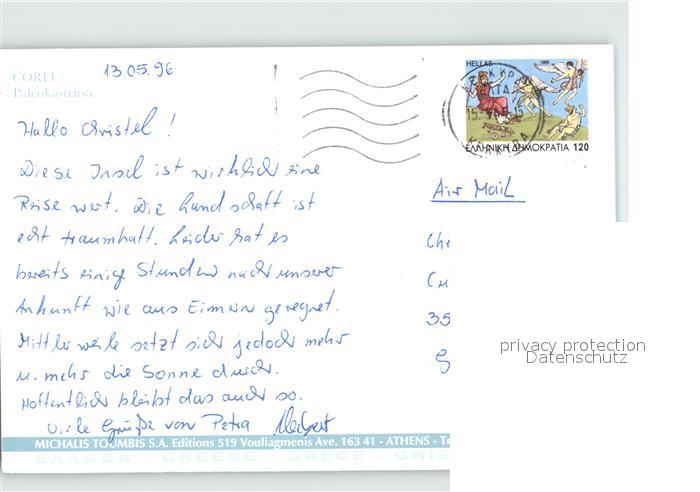 CORFU:
Paleokastritsa
13.05.96
HELLAS
ΕΛΛΗΝΙΚΗ ΔΗΜΟΚΡΑΤΙΑ 120
Hallo Christel !
Diese Insel ist wirklich eine
Reise wert. Die Landschaft ist
echt traumhaft. Leider hat es
bereits einige Stunden nach unserer
Ankunft wie aus Eimern geregnet.
Mittlerweile setzt sich jedoch mehr
u. mehr die Sonne durch.
Hoffentlich bleibt das auch so.
Viele Grüße von Petra
Air Mail
Chr
35
G
privacy protection
Datenschutz
MICHALIS TOUMBIS S.A. Editions 519 Vouliagmenis Ave. 163 41 - ATHENS - Te
ΕΛΛΑΔΑ - GREECE - GRECE - GRIE